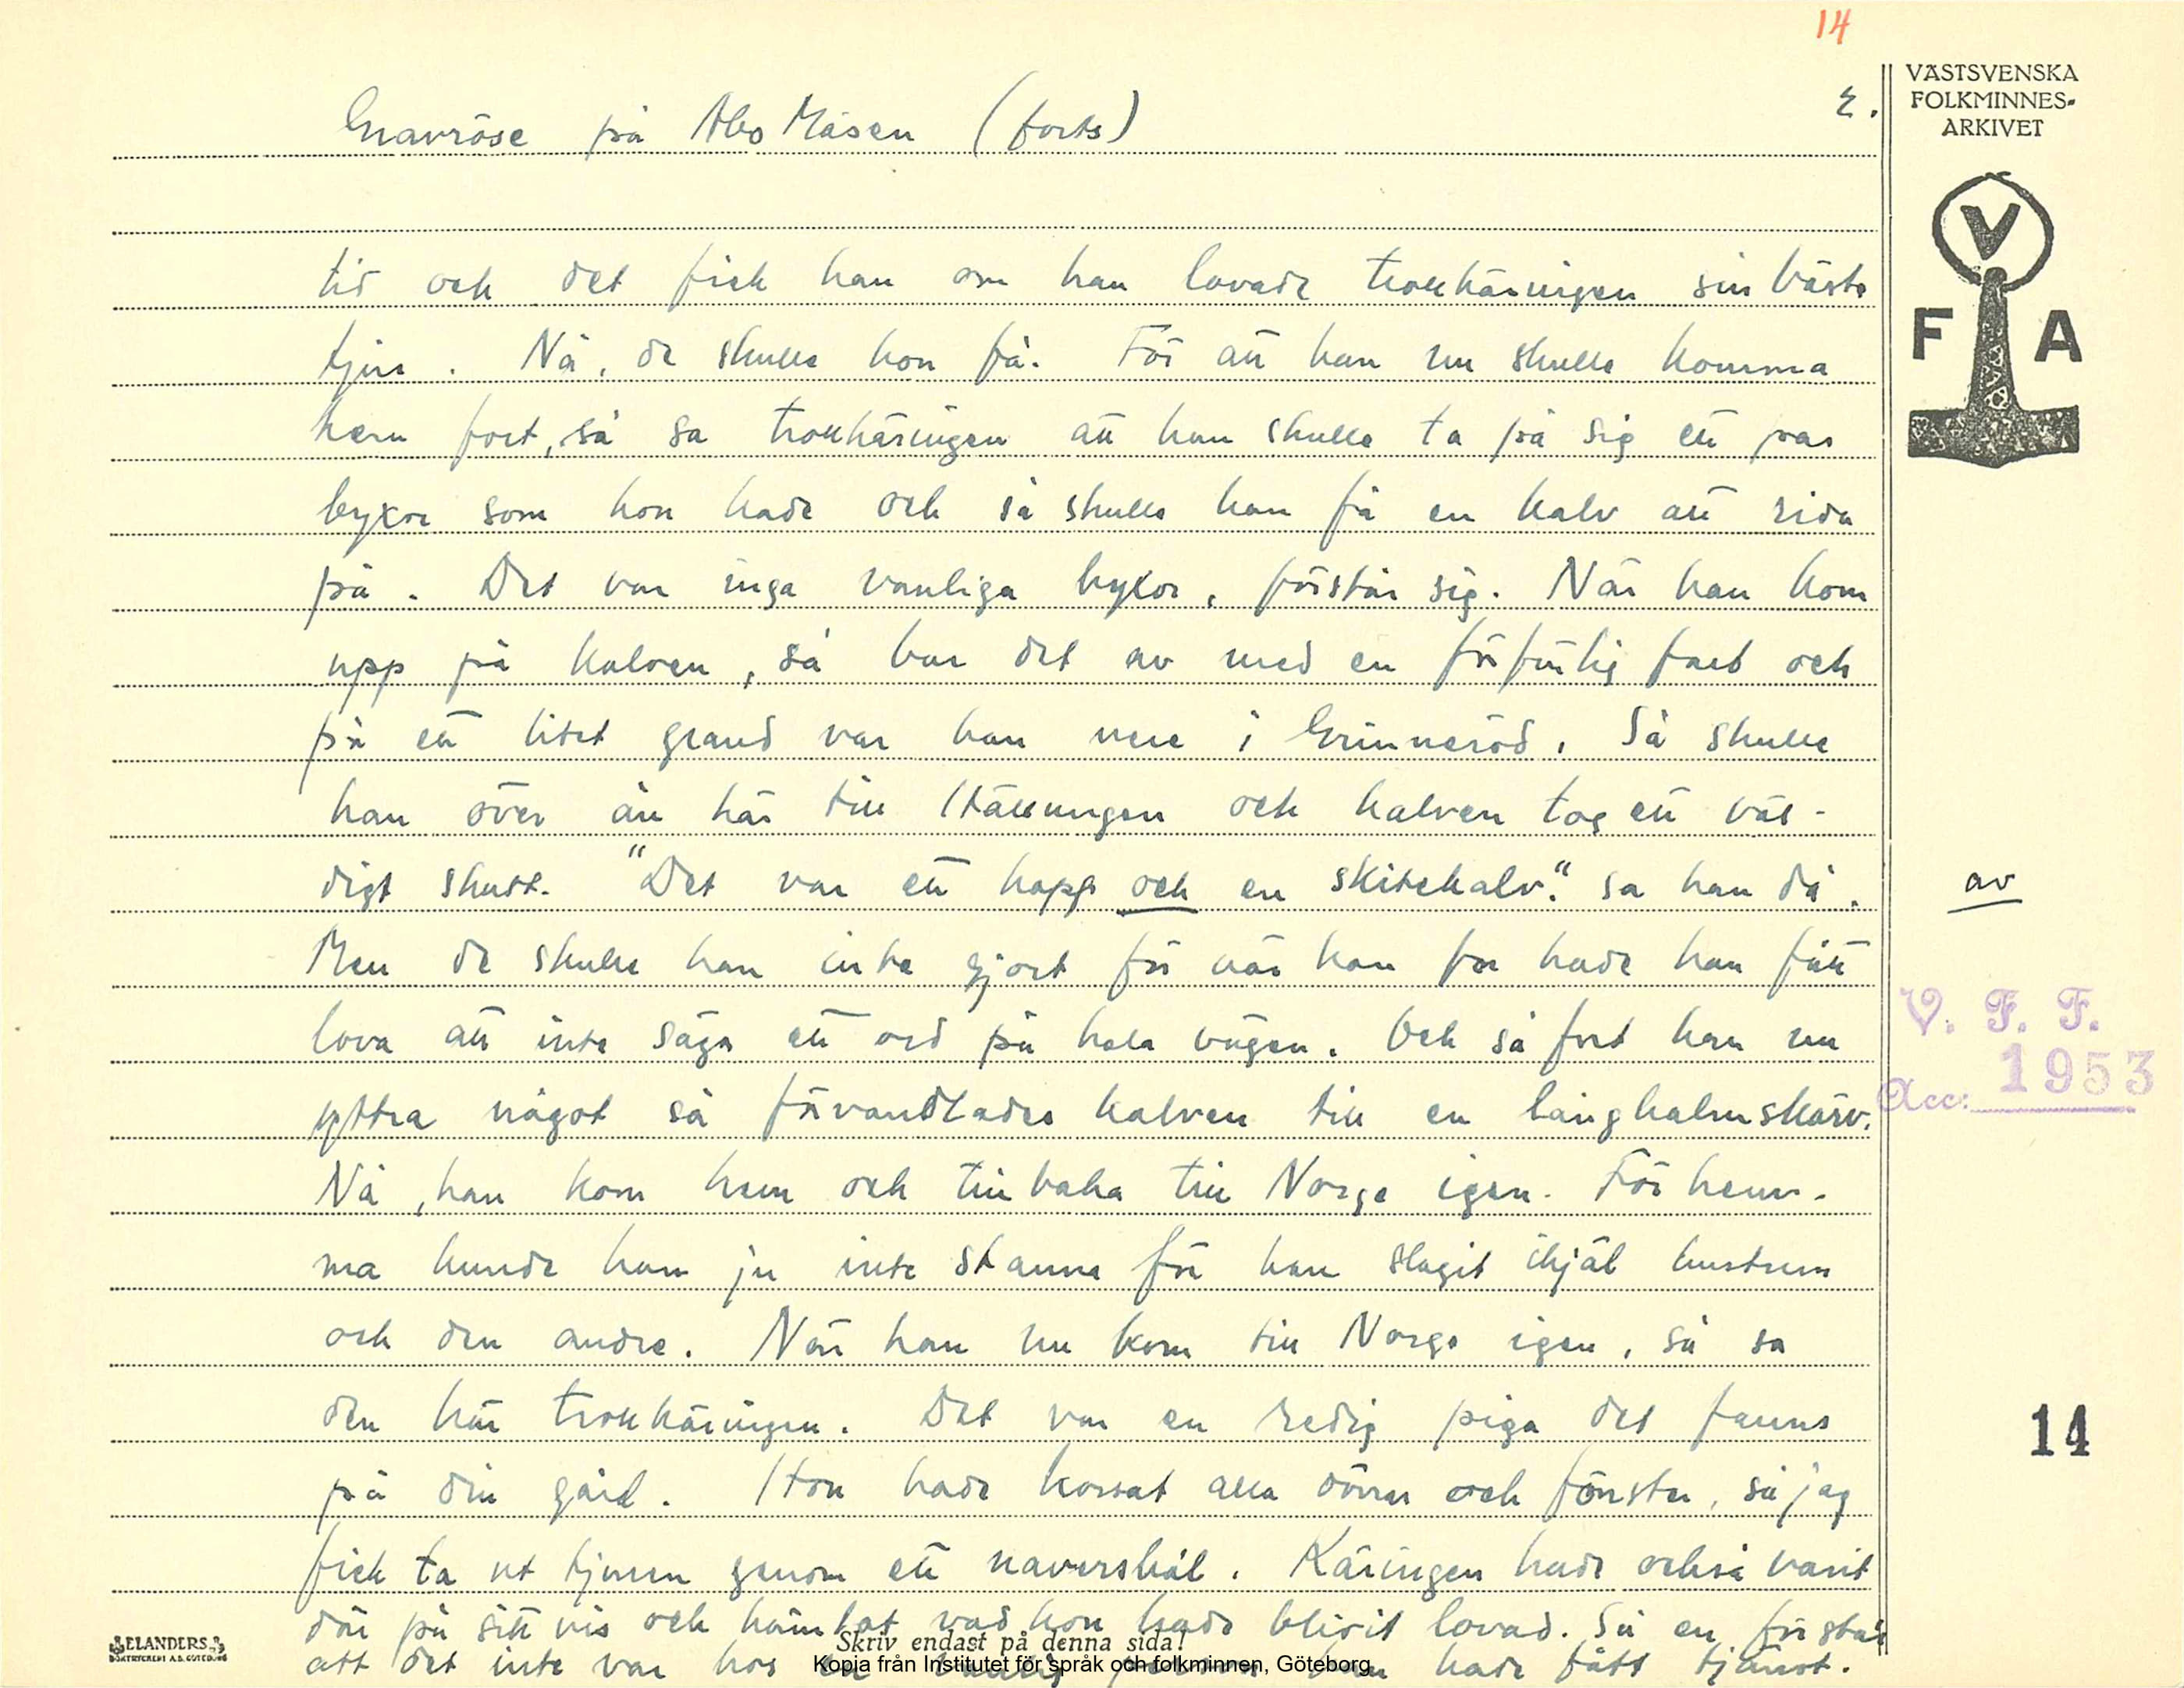 14
VÄSTSVENSKA
FOLKMINNES-
ARKIVET
V
F A
Gravröse på Abo Måsen (forts)
2.
tid och det fick han om han lovade trollkäringen sin bäste
tjur. Nå, de skulle hon få. För att han nu skulle komma
hem fort, så sa trollkäringen att han skulle ta på sig ett par
byxor som hon hade och så skulle han få en kalv att rida
på. Det var inga vanliga byxor, förstår sig. När han kom
upp på kalven, så bar det av med en förfärlig fart och
på ett litet grand var han nere i Grinneröd. Så skulle
han över ån här till Hällungen och kalven tog ett väl-
digt skutt. "Det var ett hopp och en skitekalv." sa han då.
Men de skulle han inte gjort för när han for hade han fått
lova att inte säga ett ord på hela vägen. Och så fort han nu
yttra något så förvandlades kalven till en långhalmskärv.
Nå, han kom hem och tillbaka till Norge igen. För hem-
ma kunde han ju inte stanna för han slagit ihjäl hustrun
och den andre. När han nu kom till Norge igen, så sa
den här trollkäringen. Det var en redig piga det fanns
på din gård. Hon hade korsat alla dörrar och fönster, så jag
fick ta ut tjuren genom ett navershål. Käringen hade också varit
där på sitt vis och hämtat vad hon hade blivit lovad. Så en förstår
att det inte var hos en han hade fått tjänst.
av
V. F. F.
Acc: 1953
14
ELANDERS
BOKTRYCKERI A.B. GÖTEBORG
Skriv endast på denna sida!
Kopja från Institutet för språk och folkminnen, Göteborg